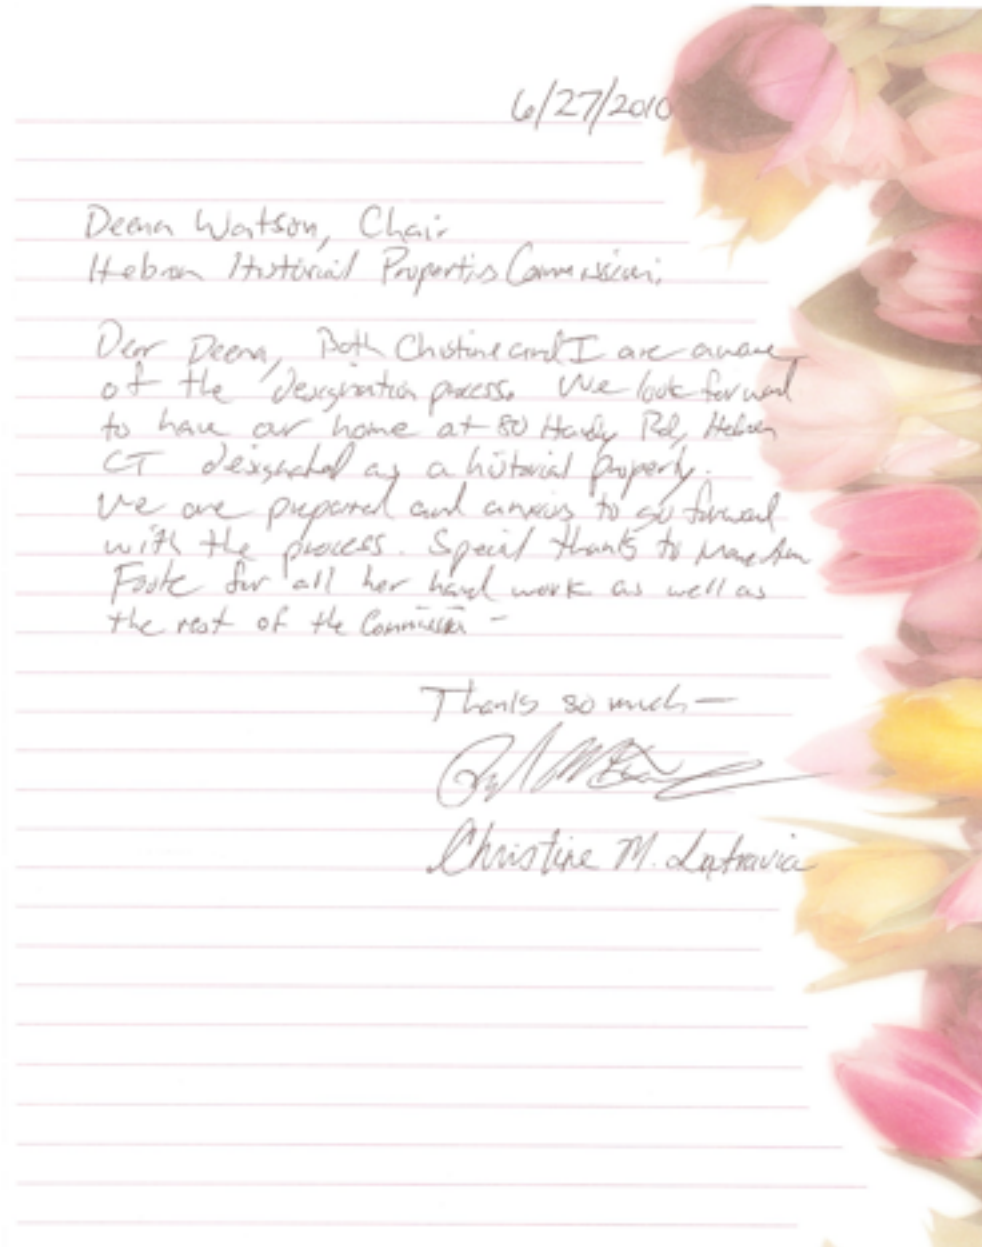 6/27/2010
Deena Watson, Chair
Hebron Historical Properties Commission
Dear Deena, Both Christine and I are aware
of the designation process. We look forward
to have our home at 80 Hardy Rd, Hebron
CT designated as a historical property.
We are prepared and anxious to go forward
with the process. Special thanks to
Foote for all her hard work as well as
the rest of the Commission -
Thanks so much -
Christine M.